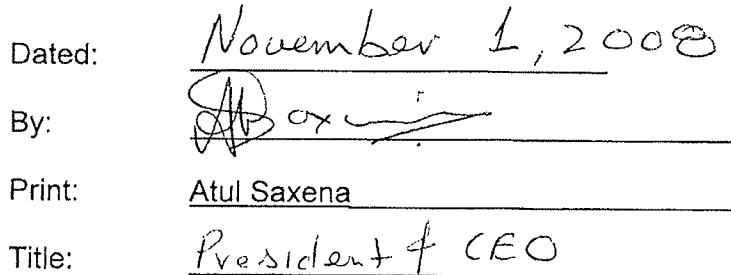 Dated: November 1, 2008
By:
Print: Atul Saxena
Title: President & CEO